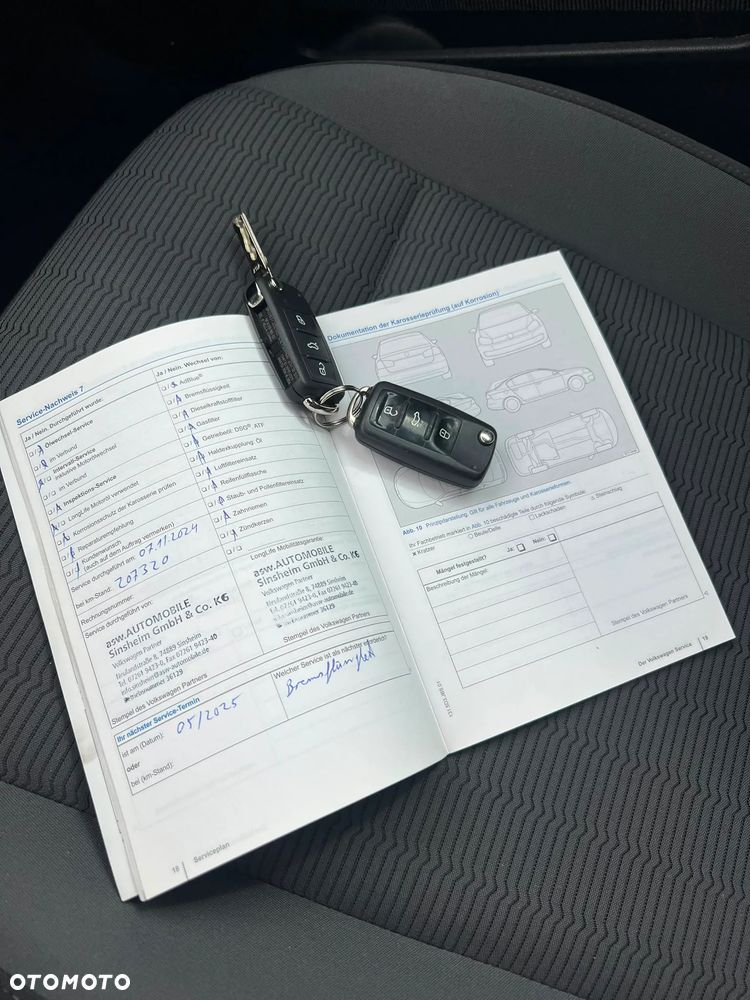 Service-Nachweis 7
Ja / Nein. Durchgeführt wurde:
Ölwechsel-Service
im Verbund
Intervall-Service
inklusive Motorölwechsel
im Verbund
Inspektions-Service
LongLife Motoröl verwendet
Korrosionsschutz der Karosserie prüfen
Reparaturempfehlung
Kundenwunsch
(auch auf dem Auftrag vermerken)
Service durchgeführt am: 07.11.2024
bei km-Stand: 207320
Rechnungsnummer:
Service durchgeführt von:
asw.AUTOMOBILE
Sinsheim GmbH & Co. KG
Volkswagen Partner
74889 Sinsheim
Tel. 07261 9423-0, Fax 07261 9423-40
info.sinsheim@asw-automobile.de
Betriebsnummer 36129
Stempel des Volkswagen Partners
Ja / Nein. Wechsel von:
AdBlue®
Bremsflüssigkeit
Dieselkraftstofffilter
Gasfilter
Getriebeöl: DSG®, ATF
Haldexkupplung: Öl
Luftfiltereinsatz
Reifenfüllflasche
Staub- und Pollenfiltereinsatz
Zahnriemen
Zündkerzen
LongLife Mobilitätsgarantie:
asw.AUTOMOBILE
Sinsheim GmbH & Co. KG
Volkswagen Partner
74889 Sinsheim
Stempel des Volkswagen Partners
Ihr nächster Service-Termin
ist am (Datum): 05/2025
oder
bei (km-Stand):
Welcher Service ist als nächster erforderlich?
18 Serviceplan
Dokumentation der Karosserieprüfung (auf Korrosion)
Abb. 10 Prinzipdarstellung: Gilt für alle Fahrzeuge und Karosserieformen.
Ihr Fachbetrieb markiert in Abb. 10 beschädigte Teile durch folgende Symbole:
Kratzer Beule/Delle Lackschaden Steinschlag
Mängel festgestellt? Ja: Nein:
Beschreibung der Mängel:
Stempel des Volkswagen Partners
Der Volkswagen Service 19
OTOMOTO